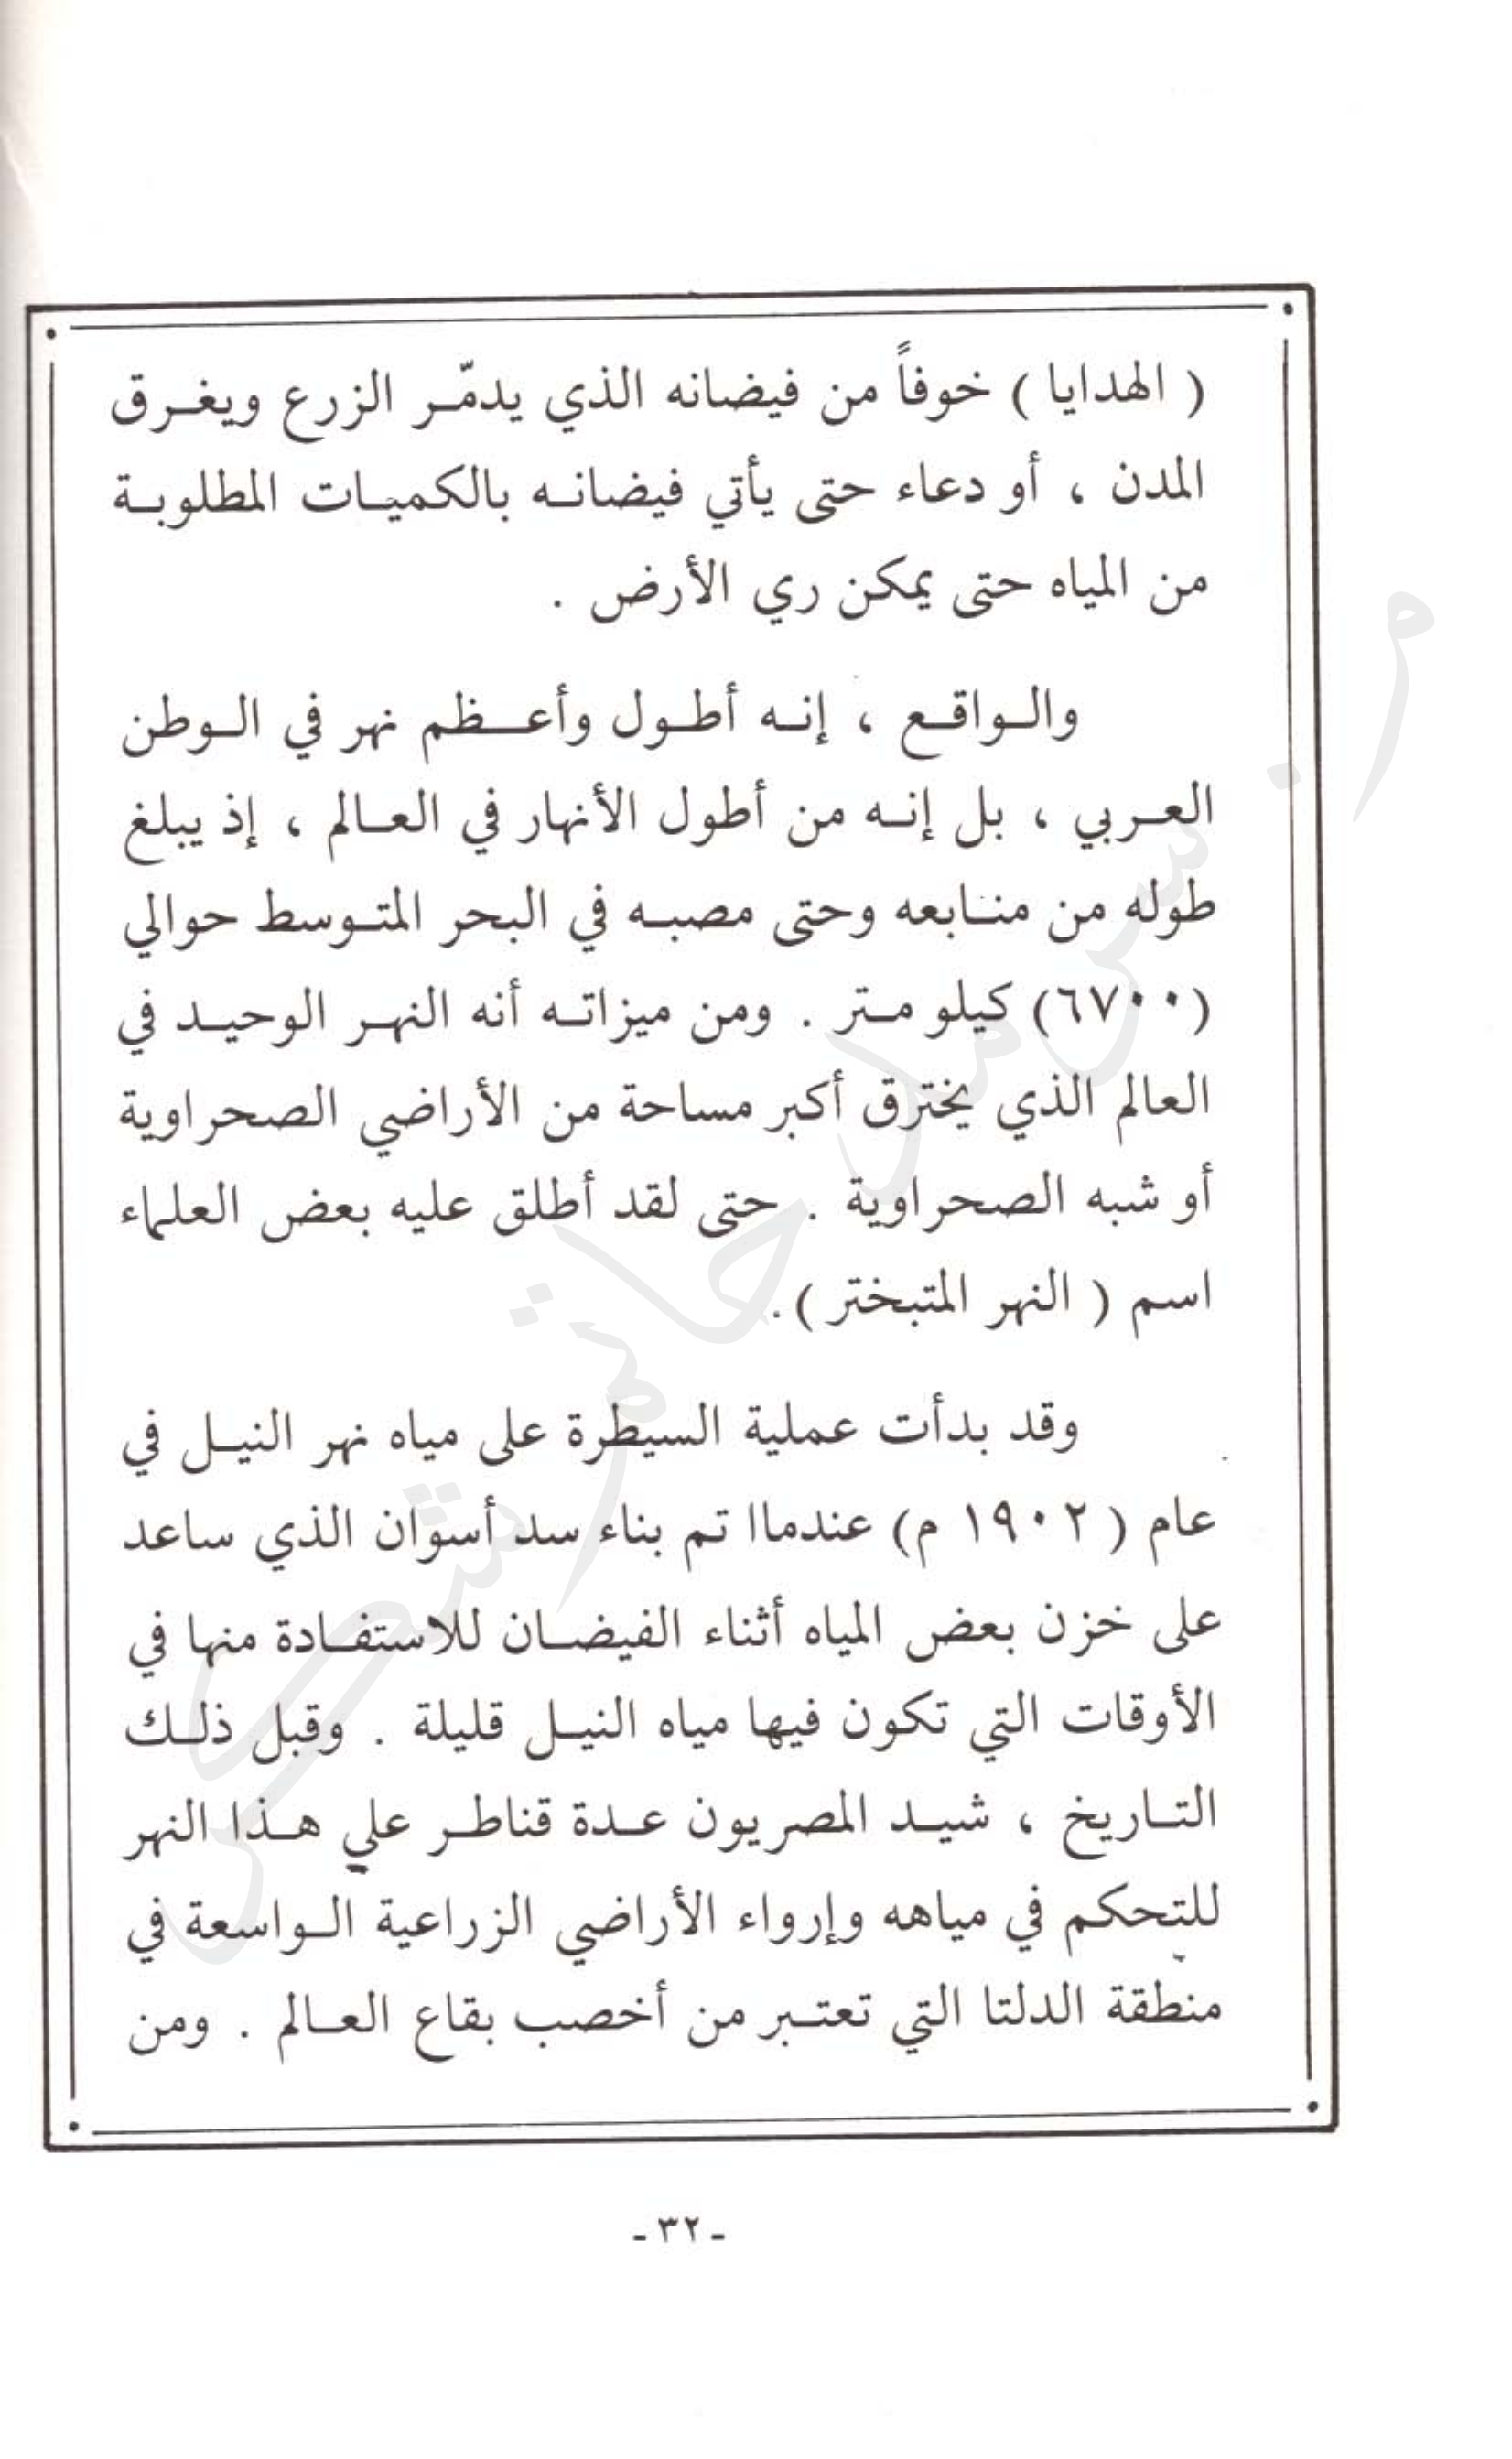 ( الهدايا ) خوفاً من فيضانه الذي يدمّر الزرع ويغرق
المدن ، أو دعاء حتى يأتي فيضانه بالكميات المطلوبة
من المياه حتى يمكن ري الأرض .
والواقع ، إنه أطول وأعظم نهر في الوطن
العربي ، بل إنه من أطول الأنهار في العالم ، إذ يبلغ
طوله من منابعه وحتى مصبه في البحر المتوسط حوالي
(٦٧٠٠) كيلو متر . ومن ميزاته أنه النهر الوحيد في
العالم الذي يخترق أكبر مساحة من الأراضي الصحراوية
أو شبه الصحراوية . حتى لقد أطلق عليه بعض العلماء
اسم ( النهر المتبختر ) .
وقد بدأت عملية السيطرة على مياه نهر النيل في
عام ( ١٩٠٢ م) عندماا تم بناء سد أسوان الذي ساعد
على خزن بعض المياه أثناء الفيضان للاستفادة منها في
الأوقات التي تكون فيها مياه النيل قليلة . وقبل ذلك
التاريخ ، شيد المصريون عدة قناطر علي هذا النهر
للتحكم في مياهه وإرواء الأراضي الزراعية الواسعة في
منطقة الدلتا التي تعتبر من أخصب بقاع العالم . ومن
- ٣٢ -